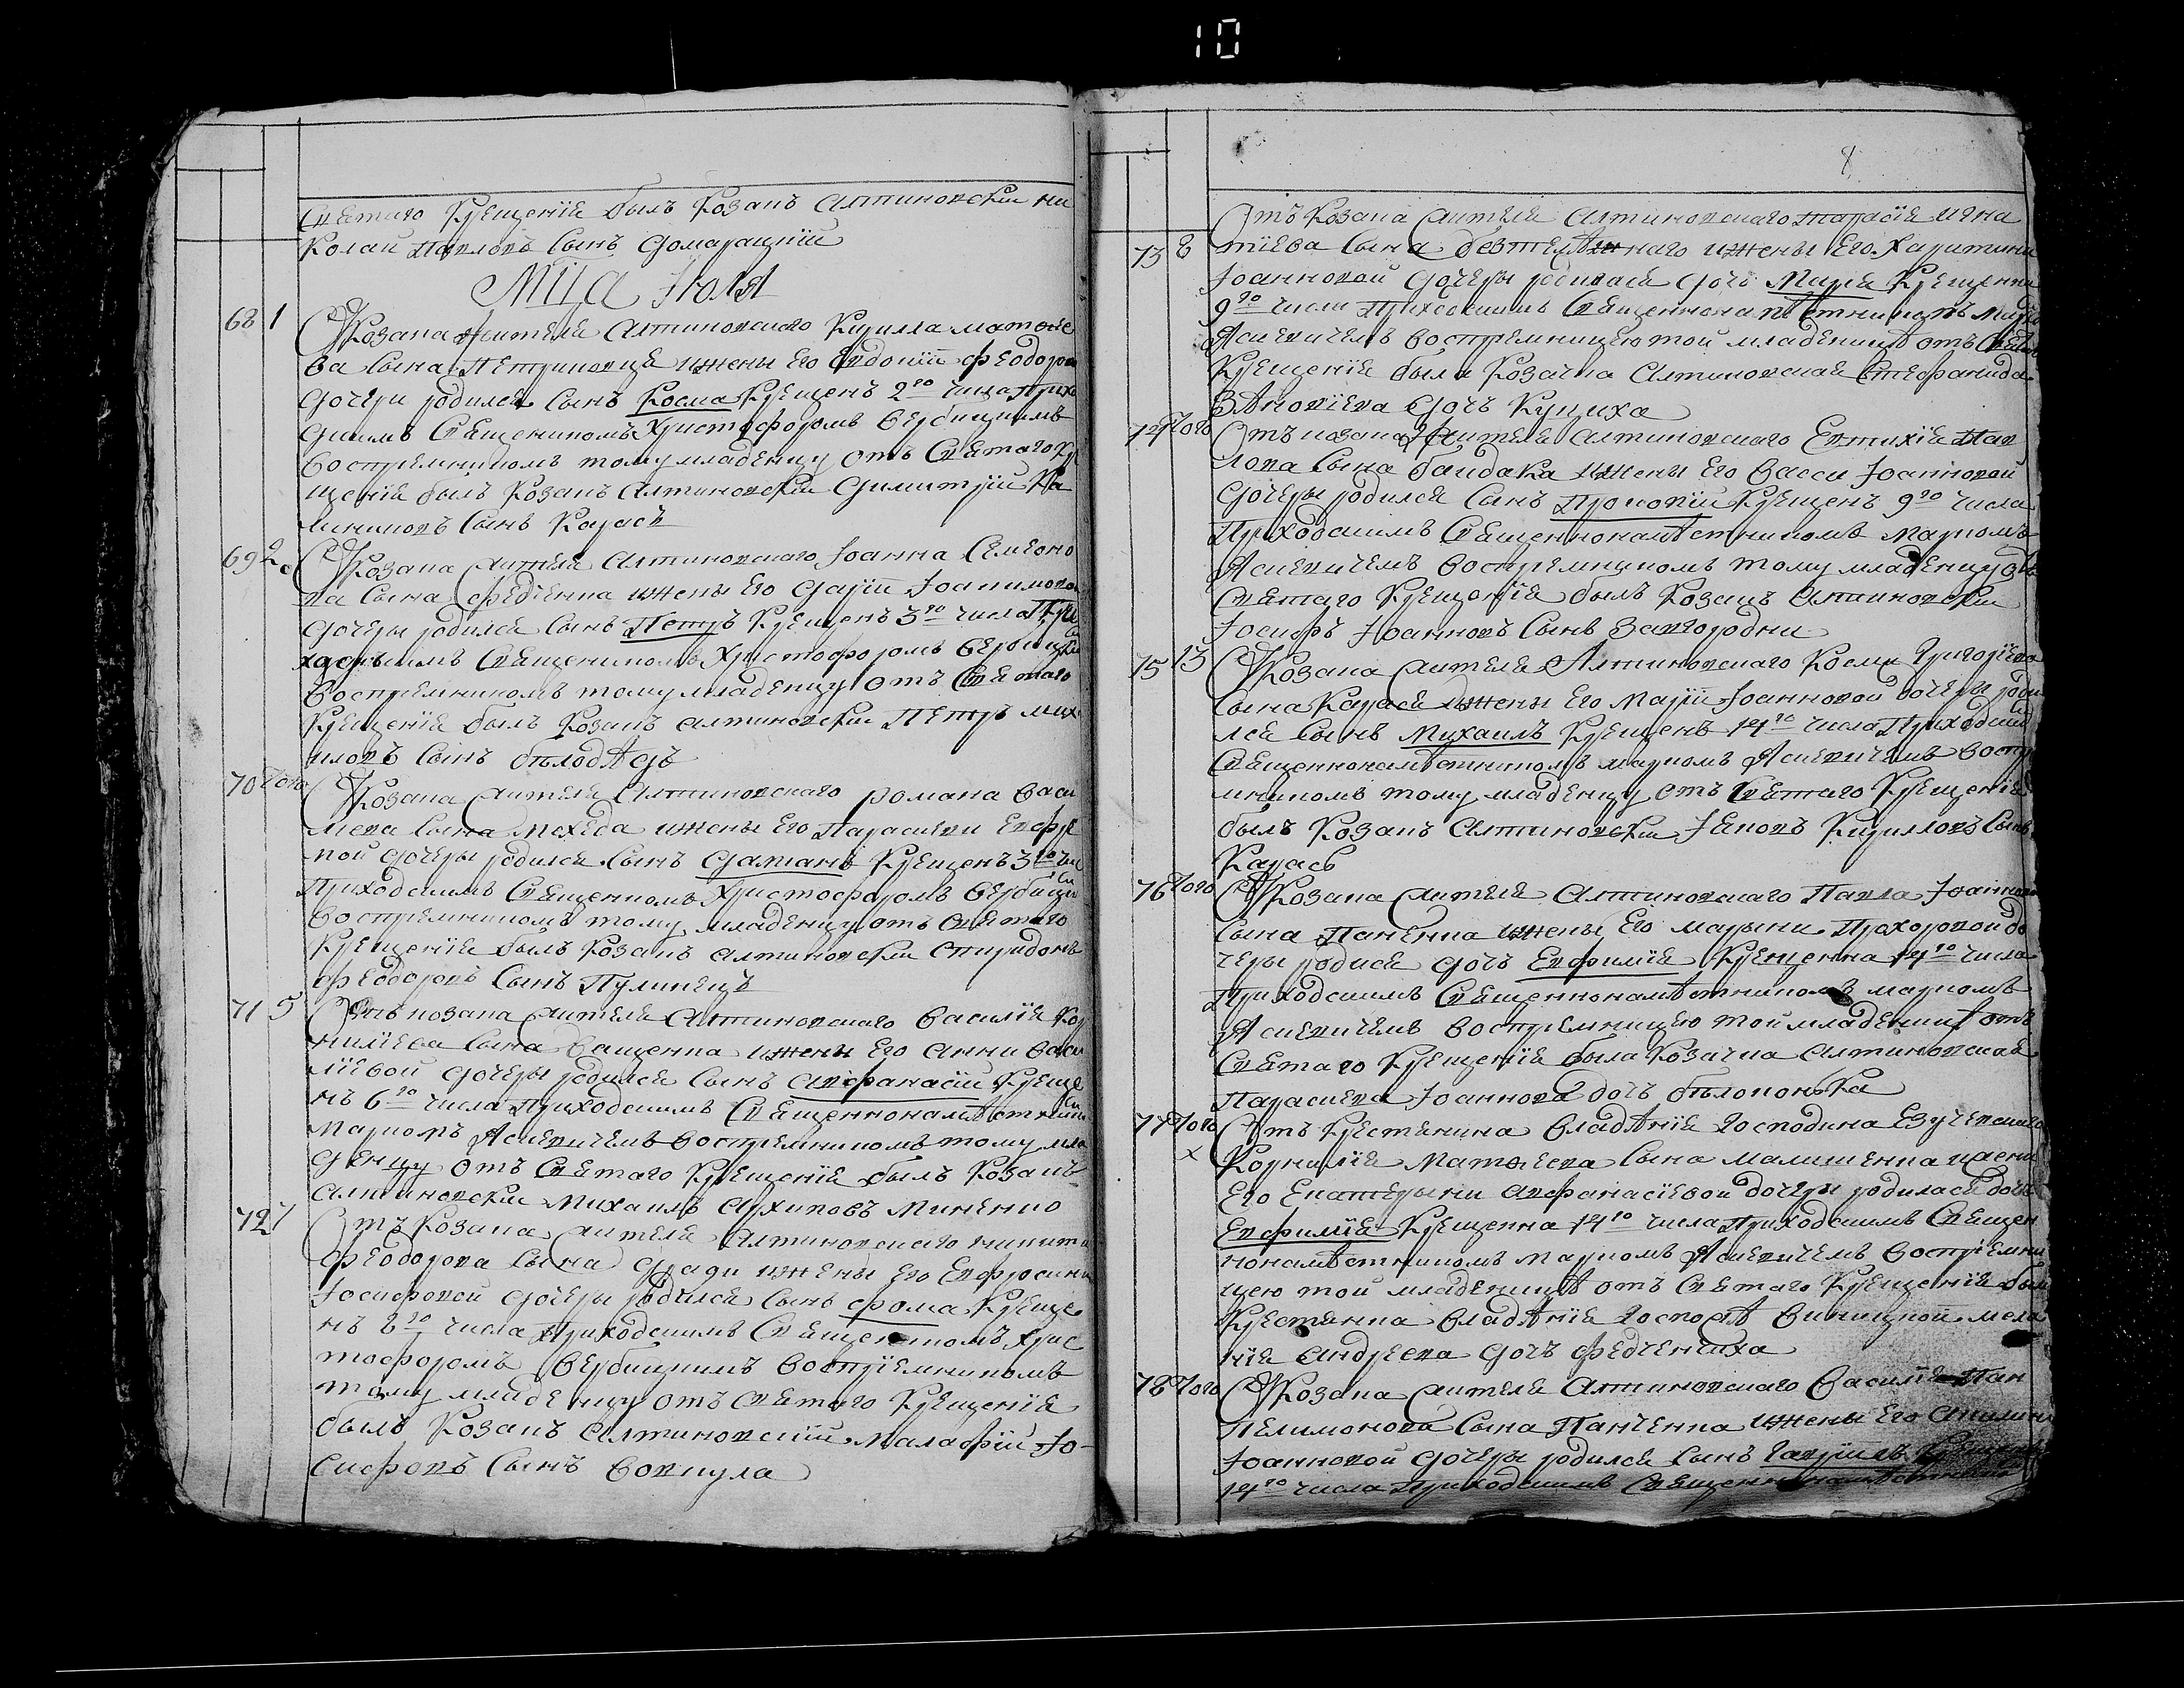 10
Святаго Крещенія былъ Козакъ Алтиновскій Ни
колай Павловъ Сынъ Домарацкій
Мца Іюля
68 1 Ѿ Козака Жителя Алтиновского Кирилла Матѳее
ва Сына Петриковця ижены Его Евдокіи Феодоро
Дочери родился Сынъ Косма Крещенъ 2го числа Прихо
дскимъ Священикомъ Христофоромъ Вербицкимъ
Воспремникомъ тому младенцу отъ Святаго Кр
щенія былъ Козакъ Алтиновскій Димитрій Ка
линиковъ Сынъ Карась
69 2 Ѿ Козака жителя Алтиновского Іоанна Симеоно
ва Сына Федченка ижены Его Даріи Іоакимовой
Дочеры родился Сынъ Петръ Крещенъ 3го числа При
ходскимъ Священикомъ Христофоромъ Вербицким
Воспремникомъ тому младенцу отъ Святаго
Крещенія былъ Козакъ Алтиновскій Петръ Миха
иловъ Сынъ Бѣлодѣдъ
70 Того Ѿ Козака жителя Алтиновского Романа Васи
лиева Сына ижены Его Параскеви
ной Дочеры родился Сынъ Даміанъ Крещенъ 3го чи
Приходскимъ Священикомъ Христофоромъ Вербицки
Воспремникомъ тому младенцу отъ Святаго
Крещенія былъ Козакъ Алтиновскій Спиридонъ
Феодоровъ Сынъ Пулинецъ
71 5 Отъ козака жителя Алтиновского Василія Кор
ниліева Сына Ващенка ижены Его Анни Васи
ліевой Дочеры родился Сынъ Аѳфанасій Креще
нъ 6го числа Приходскимъ Священнонамѣстником
Маркомъ Ясиевичемъ Воспремникомъ тому мла
денцу отъ Святаго Крещенія былъ Козакъ
Алтиновскій Михаилъ Архиповъ Миненко
72 7 Отъ Козака жителя Алтиновского Никити
Феодорова Сына ижены Его Евфросини
Іосифовой Дочеры родился Сынъ Фома Креще
нъ 8го числа Приходскимъ Священикомъ Хрис
тофоромъ Вербицкимъ Воспріемникомъ
тому младенцу отъ Святаго Крещенія
былъ Козакъ Алтиновскій Малафій Іо
сифовъ Сынъ Вовкула
8
Отъ Козака жителя Алтиновского Тарасія Игна
73 8 тіева Сына ижены Его Харитини
Іоанновой Дочеры родилася Дочь Марія Крещенна
9го числа Приходскимъ Священнонамѣстникомъ Марк
Ясиевичемъ Воспремницею той младеницѣ отъ Свята
Крещенія была Козачка Алтиновская Стефанида
Зѣновіева Дочь Куциха
74 Того Отъ козака Жителя Алтиновского Евтихія Пав
лова Сына Байдака ижены Его Васси Іоанновой
Дочеры родился Сынъ Прокопій Крещенъ 9го числа
Приходскимъ Священнонамѣстникомъ Маркомъ
Ясиевичемъ Воспремникомъ тому младенцу отъ
Святаго Крещенія былъ Козакъ Алтиновскій
Іосифъ Іоанновъ Сынъ Загородни
75 13 Ѿ Козака жителя Алтиновского Косми Григоріева
Сына Карася ижены Его Маріи Іоанновой Дочеры роди
лся Сынъ Михаилъ Крещенъ 14го числа Приходским
Священнонамѣстникомъ Маркомъ Ясиевичемъ Воспр
мникомъ тому младенцу отъ Святаго Крещенія
былъ Козакъ Алтиновскій Іаковъ Кирилловъ Сынъ
Карась
76 Того Ѿ Козака жителя Алтиновского Павла Іоаннова
Сына Панченка ижены Его Марыни Прохоровой до
черы родися Дочь Евфимія Крещенна 14го числа
Приходскимъ Священнонамѣстникомъ Маркомъ
Ясиевичемъ Воспремницею той младеницѣ отъ
Святаго Крещенія была Козачка Алтиновская
Параскева Іоаннова Дочь Бѣлоконька
77 Того Отъ Крестянина Владѣнія Господина Езучевского
х Корнилія Матѳеева Сына Малишенка ижени
Его Екатерыни Аѳфанасіевой Дочеры родилася дочь
Евфимія Крещенна 14го числа Приходскимъ Священ
нонамѣстникомъ Маркомъ Ясиевичемъ Воспріемни
цею той младеницѣ отъ Святаго Крещенія был
Крестянка Владѣнія Госпожѣ Виницкой Мела
нія Андреева Дочь Федченчиха
78 Того Ѿ Козака жителя Алтиновского Василія Пан
телимонова Сына Панченка ижены Его Акилини
Іоанновой Дочеры родился Сынъ Гавріилъ Крещенъ
14го числа Приходскимъ Священнонамѣстником